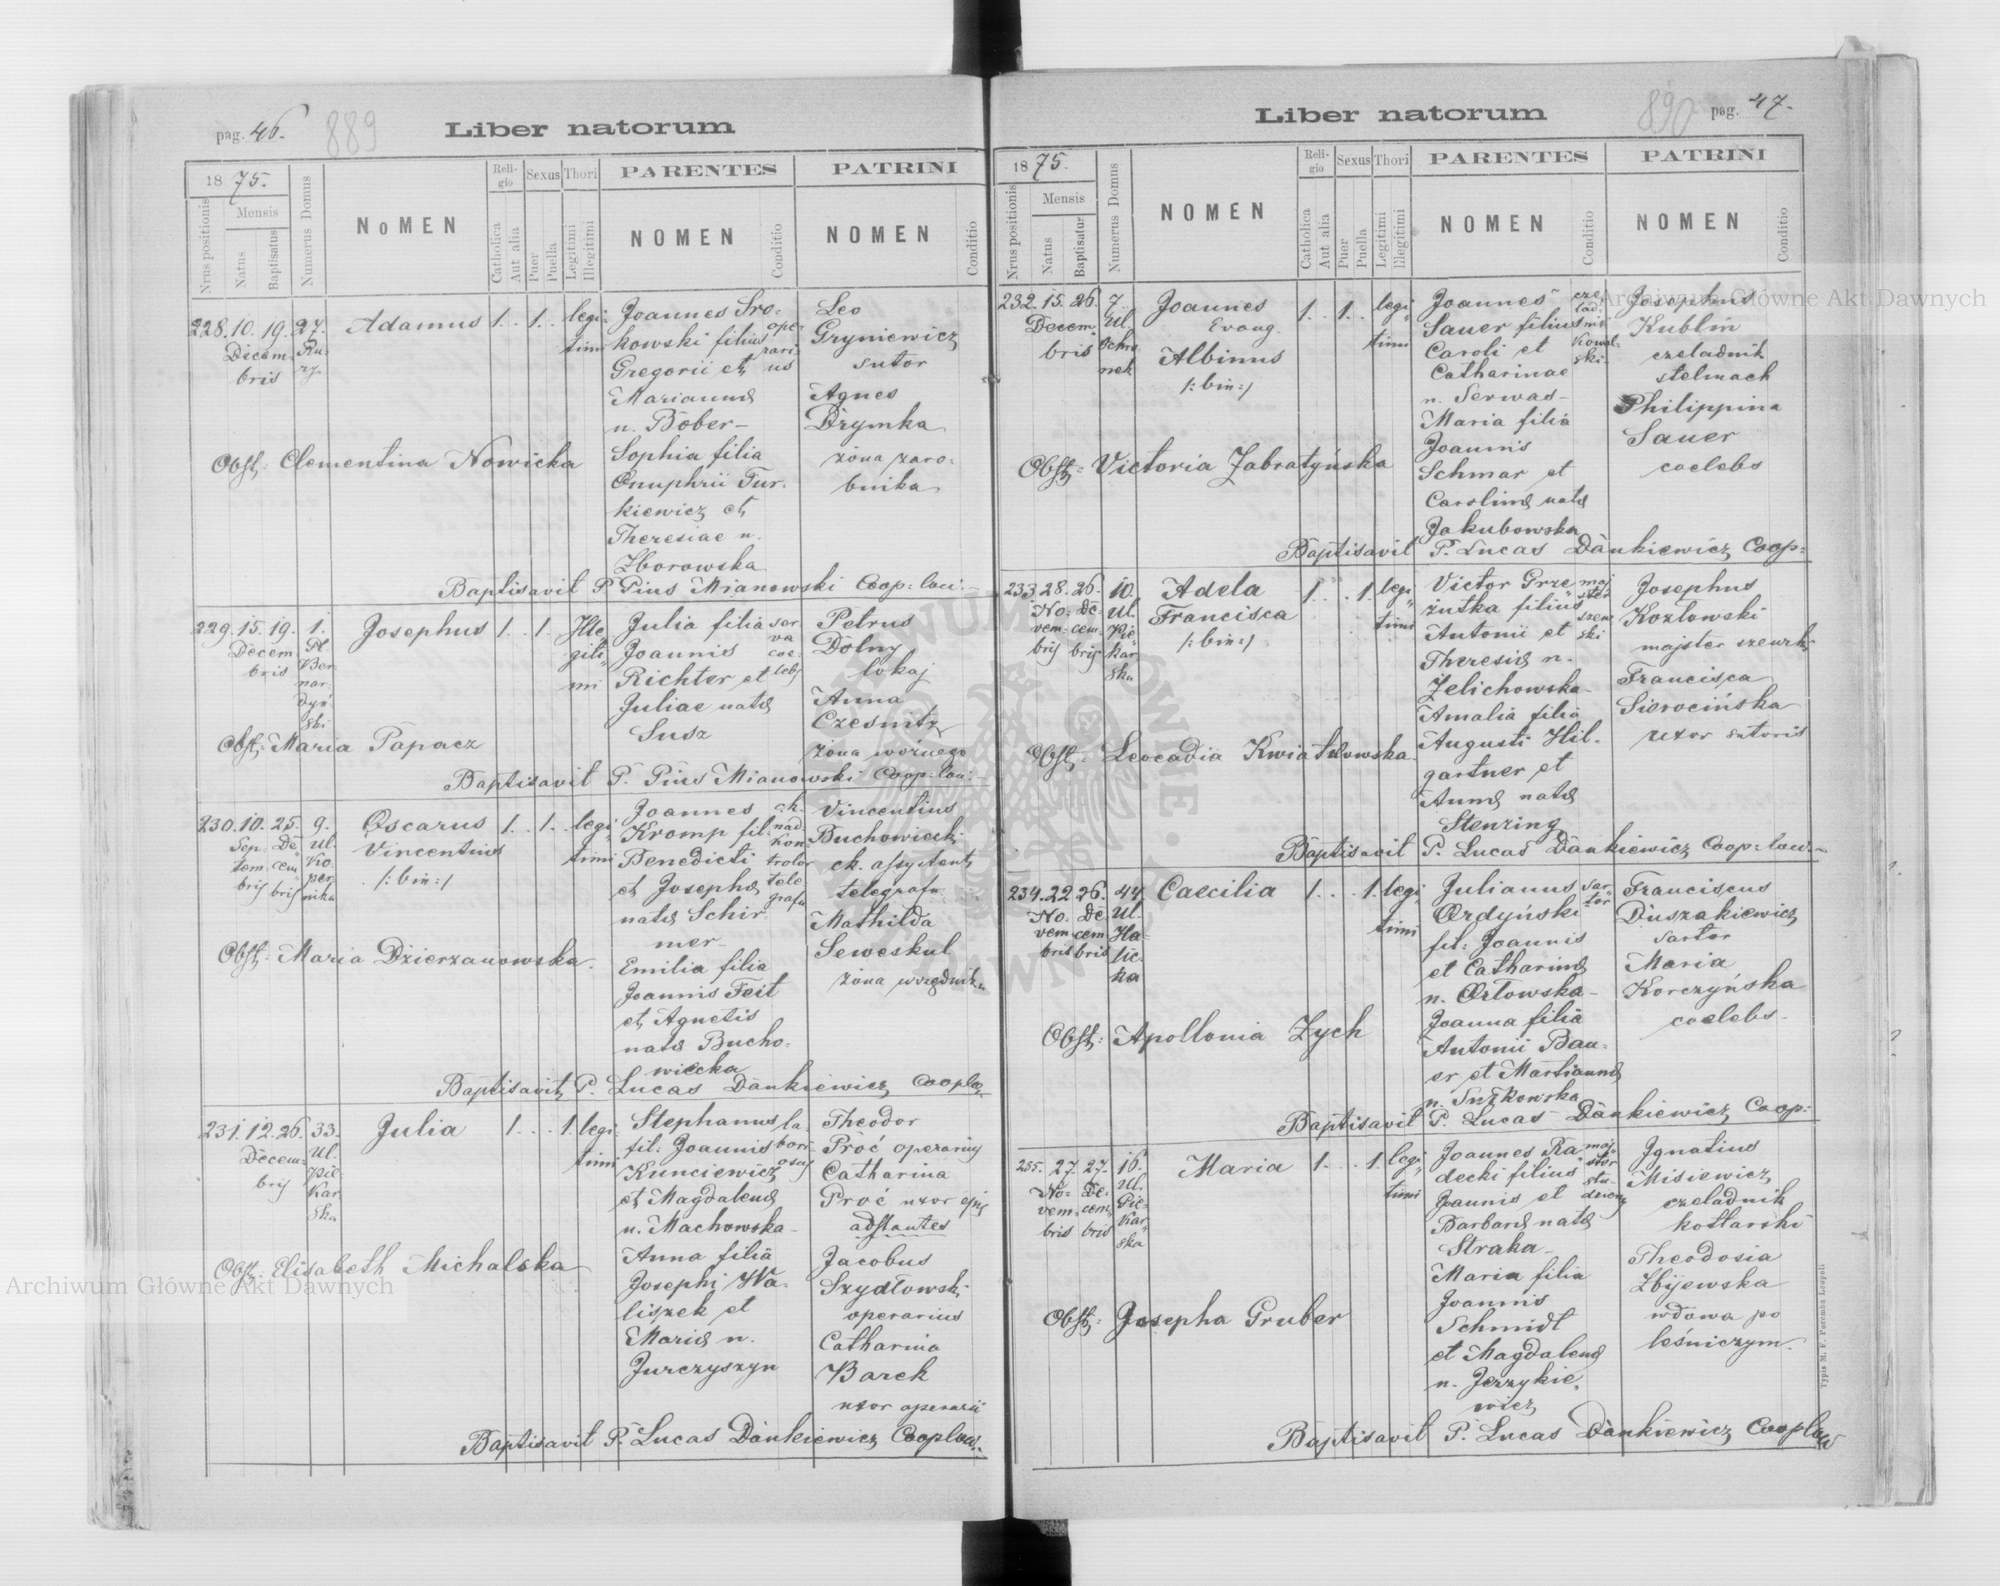 pag. 46. 889 Liber natorum
18 75.
Nrus positionis
Mensis
Natus
Baptisatus
Numerus Domus
NOMEN
Religio
Catholica
Aut alia
Sexus
Puer
Puella
Thori
Legitimi
Illegitimi
PARENTES
NOMEN
Conditio
PATRINI
NOMEN
Conditio
228. 10. 19. 27.
Decem-
bris
Ru-
ry.
Adamus
1. . 1. .
legi-
timi
Joannes Sro-
kowski filius
Gregorii et
Mariannæ
n. Bober-
Sophia filia
Onuphrii Tur-
kiewicz et
Theresiae n.
Zborowska
ope-
rari-
us
Leo
Gryniewicz
sutor
Agnes
Drymka
żona zaro-
bnika
Obst: Clementina Nowicka
Baptisavit P. Pius Mianowski Coop: lau:-
229. 15. 19. 1.
Decem-
bris
Pl.
Ber-
nar-
dyń-
ski
Josephus
1. . 1. .
Ille-
giti-
mi
Julia filia
Joannis
Richter et
Juliae natæ
Susz
ser-
va
coe-
lebs
Petrus
Dolny
lokaj
Anna
Czesnitz
żona woźnego
Obst: Maria Papacz
Baptisavit P. Pius Mianowski Coop: lau:-
230. 10. 25. 9.
Sep-
tem-
bris
De-
cem-
bris
Ul.
Ko-
per-
nika
Oscarus
Vincentius
/: bin :/
1. . 1. .
legi-
timi
Joannes
Kromp fil:
Benedicti
et Josephæ
natæ Schir-
mer-
Emilia filia
Joannis Feit
et Agnetis
natæ Bucho-
wiecka
c.k.
nad
kon-
trolor
tele-
grafu
Vincentius
Buchowiecki
ck. assystent
telegrafu
Mathilda
Seweskul
żona urzędnika
Obst: Maria Dzierzanowska.
Baptisavit P. Lucas Dankiewicz Coop lau
231. 12. 26. 33.
Decem-
bris
Ul.
Pie-
kar-
ska
Julia
1. . . 1.
legi-
timi
Stephanus
fil: Joannis
Kunciewicz
et Magdalenæ
n. Machowska-
Anna filia
Josephi Wa-
liszek et
Mariæ n.
Jurczyszyn
la-
bori-
osus
Theodor
Proć operarius
Catharina
Proć uxor ejus
adstantes
Jacobus
Szydłowski
operarius
Catharina
Barek
uxor operarii
Obst: Elisabeth Michalska
Baptisavit P. Lucas Dankiewicz Coop lau:-
Liber natorum 890 pag. 47.
18 75.
Nrus positionis
Mensis
Natus
Baptisatur
Numerus Domus
NOMEN
Religio
Catholica
Aut alia
Sexus
Puer
Puella
Thori
Legitimi
Illegitimi
PARENTES
NOMEN
Conditio
PATRINI
NOMEN
Conditio
232. 15. 26. 7.
Decem-
bris
Ul.
Ochro-
nek
Joannes
Evang.
Albinus
/: bin :/
1. . 1. .
legi-
timi
Joannes
Sauer filius
Caroli et
Catharinae
n. Serwas-
Maria filia
Joannis
Schmar et
Carolinæ natæ
Jakubowska
cze-
lad-
nik
kowal-
ski
Josephus
Kublin
czeladnik
stelmach
Philippina
Sauer
coelebs
Obst: Victoria Zabratyńska
Baptisavit P. Lucas Dankiewicz Coop:
233. 28. 26. 10.
No-
vem-
bris
De-
cem-
bris
Ul.
Pie-
kar-
ska
Adela
Francisca
/: bin :/
1. . . 1.
legi-
timi
Victor Grze-
żutka filius
Antonii et
Theresiæ n.
Zelichowska-
Amalia filia
Augusti Hil-
gartner et
Annæ natæ
Stenzing
maj-
ster
szew-
ski
Josephus
Kozłowski
majster szewski
Francisca
Sierocińska
uxor sutoris
Obst: Leocadia Kwiatkowska
Baptisavit P. Lucas Dankiewicz Coop: lau:-
234. 22. 26. 44
No-
vem-
bris
De-
cem-
bris
Ul.
Ha-
lic-
ka
Caecilia
1. . . 1.
legi-
timi
Julianus
Ordyński
fil: Joannis
et Catharinæ
n. Orłowska-
Joanna filia
Antonii Bau-
er et Mariannæ
n. Suzkowska
sar-
tor
Franciscus
Duszakiewicz
sartor
Maria
Korczyńska
coelebs-
Obst: Apollonia Zych
Baptisavit P. Lucas Dankiewicz Coop:
235. 27. 27. 16.
No-
vem-
bris
De-
cem-
bris
Ul.
Pie-
kar-
ska
Maria
1. . . 1.
legi-
timi
Joannes Ra-
decki filius
Joannis et
Barbaræ natæ
Straka-
Maria filia
Joannis
Schmidt
et Magdalenæ
n. Jerzykie-
wicz
maj-
ster
Ignatius
Misiewicz
czeladnik
kotlarski
Theodosia
Zbijewska
wdowa po
leśniczym.
Obst: Josepha Gruber
Baptisavit P. Lucas Dankiewicz Coop lau
Typis M. F. Poremba Leopoli
Archiwum Główne Akt Dawnych
Archiwum Główne Akt Dawnych